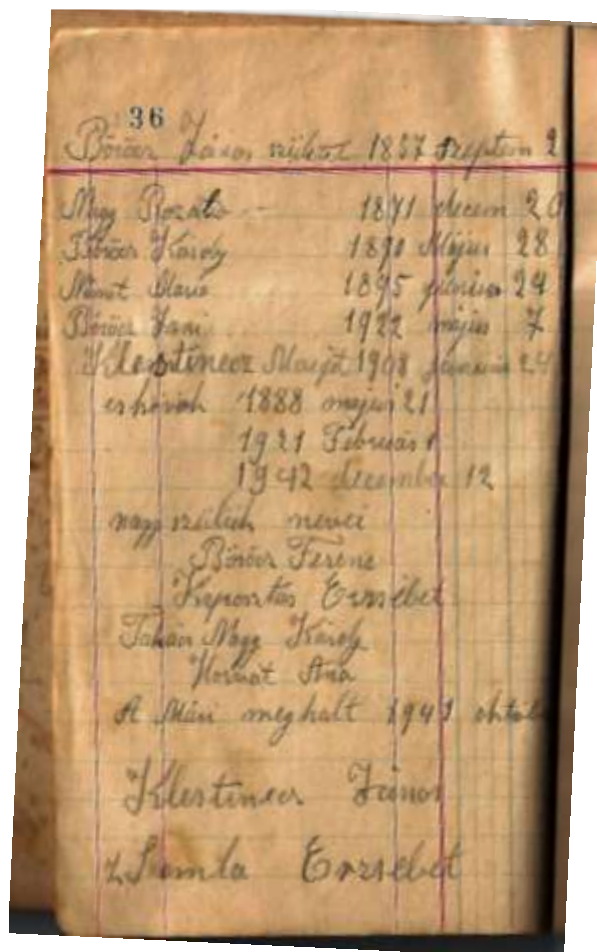 36
Böröcz János születet 1857 szeptem 2
Nagy Rozali 1871 decem 20
Böröcz Károly 1890 Május 28
Német Maria 1895 junius 24
Böröcz Jani 1922 május 7
Klestinecz 1908 24
eshövök 1888 majus 21
1921 Februás 1
1942 december 12
nagy szülöik nevei
Böröcz Ferenc
Kaposztas Erzsébet
Takács Nagy Károly
Horvat Ana
A Mári meghalt 1941 oktob
Klestinecz János
Erzsébet